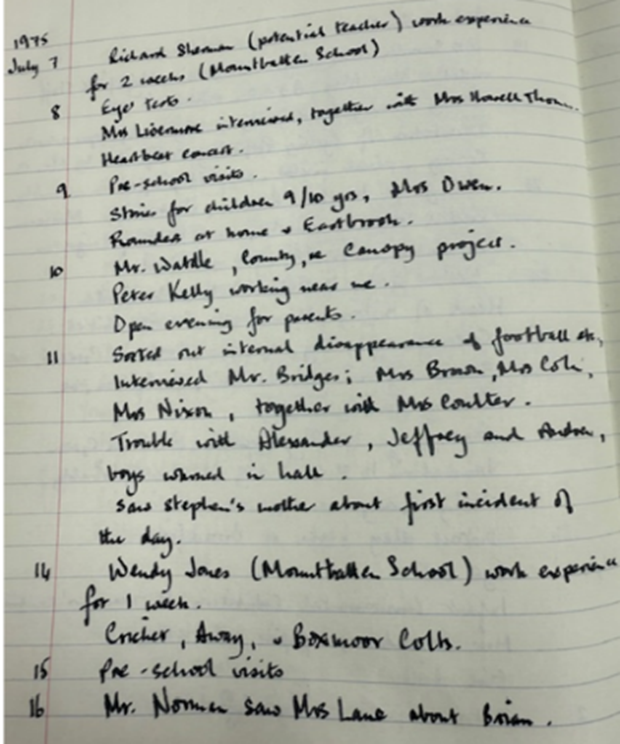 1975
July 7 Richard Sherman (potential teacher) work experience
for 2 weeks (Mountbatten School)
8 Eye tests.
Mrs Livermore interviewed, together with Mrs Howell Thomas.
Heartbeat concert.
9 Pre-school visits.
Stories for children 9/10 yrs, Mrs Owen.
Rounders at home v Eastbrook.
10 Mr. Waddle, County, re Canopy project.
Peter Kelly working near me.
Open evening for parents.
11 Sorted out internal disappearance of football etc,
Interviewed Mr. Bridges; Mrs Brown, Mrs Cole,
Mrs Nixon, together with Mrs Coulter.
Trouble with Alexander, Jeffrey and Andrew,
boys warned in hall.
Saw Stephen's mother about first incident of
the day.
14 Wendy Jones (Mountbatten School) work experience
for 1 week.
Cricket, Away, v Boxmoor Colts.
15 Pre-school visits
16 Mr. Norman saw Mrs Lane about Brian.